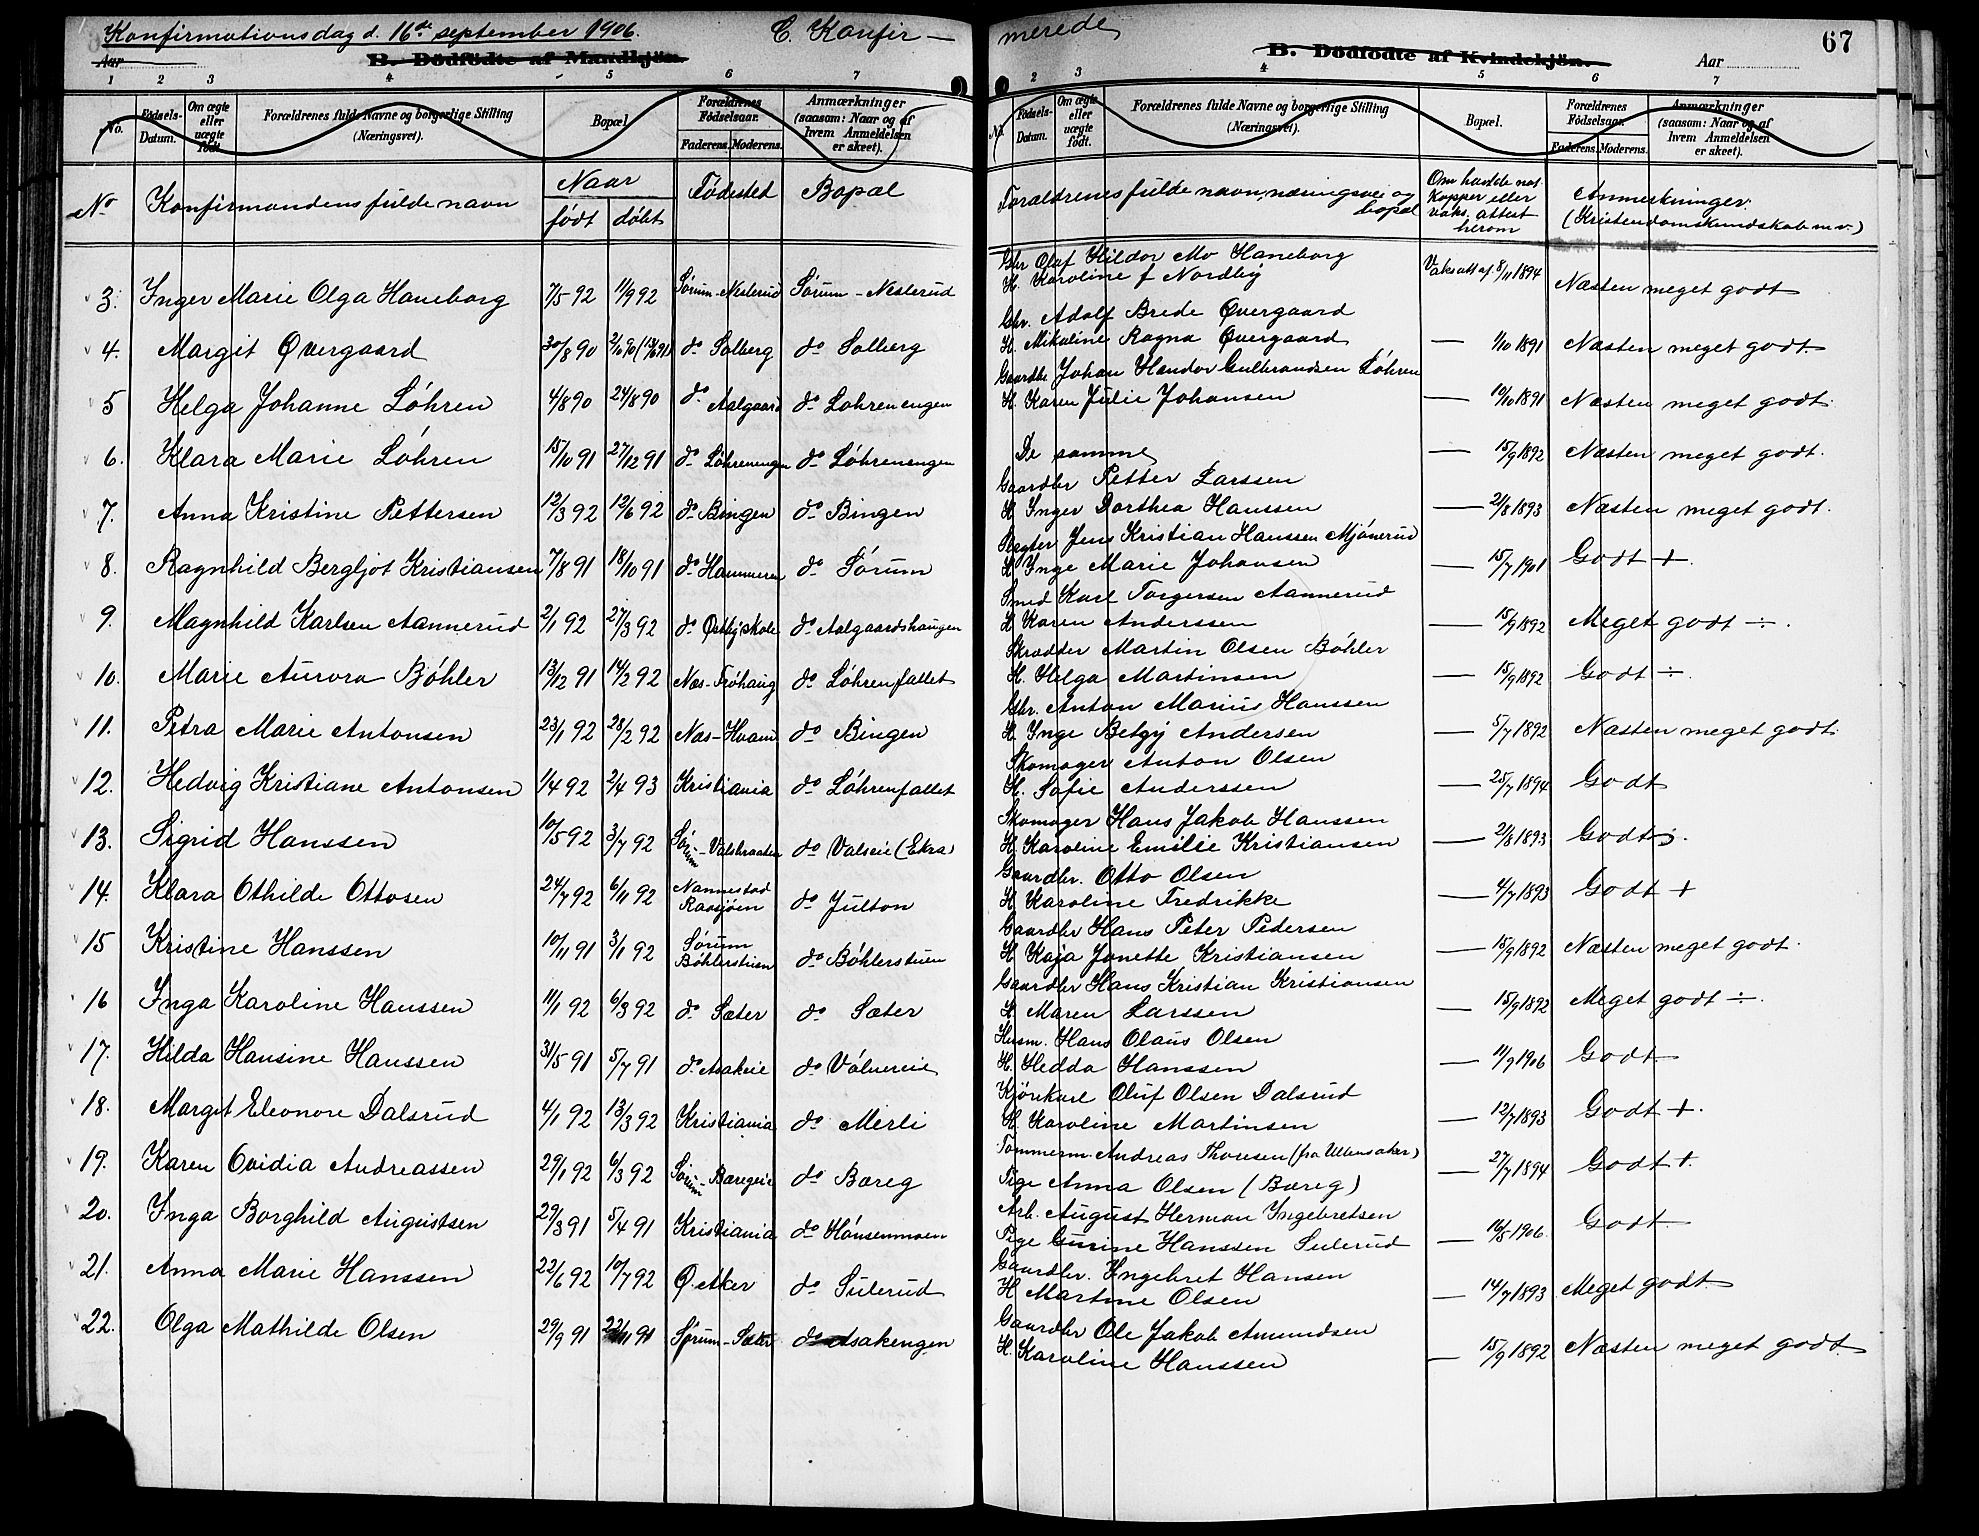 Konfirmationsdag d. 16de september 1906. C. Konfir-
merede
67
Aar
B. Dödfödte af Mandkjön.
B. Dödfödte af Kvindekjön.
Aar
1 2 3 4 5 6 7
2 3 4 5 6 7
No. Fødsels-Datum. Om ægte eller uægte født. Forældrenes fulde Navne og borgerlige Stilling (Næringsvei). Bopæl. Forældrenes Fødselsaar. Faderens. Moderens. Anmærkninger (saasom: Naar og af hvem Anmeldelsen er skeet).
No. Fødsels-Datum. Om ægte eller uægte født. Forældrenes fulde Navne og borgerlige Stilling (Næringsvei). Bopæl. Forældrenes Fødselsaar. Faderens. Moderens. Anmærkninger (saasom: Naar og af hvem Anmeldelsen er skeet).
No Konfirmandens fulde navn Naar født døbt Fødested Bopæl
Forældrenes fulde navn, næringsvei og bopæl Om havde nat. Kopper eller vaks. attest herom Anmerkninger. (Kristendomskundskab m.v.)
3. Inger Marie Olga Haneborg 7/5 92 11/9 92 Sørum-Nesterud Sørum-Nesterud
Gbr Olaf Hildor Mo Haneborg
H. Karoline f Nordby Vaks.att af 8/11 1894 Næsten meget godt
4. Margit Øvergaard 30/8 90 do Solberg do Solberg
Gbr. Adolf Brede Øvergaard
H. Mikaline Ragna Øvergaard — 1/10 1891 Næsten meget godt.
5 Helga Johanne Løhren 4/8 90 24/8 90 do Aalgaard do Løhrenengen
Gaardbr Johan Hendor Gulbrandsen Løhren
H. Karen Julie Johansen — 10/10 1891 Næsten meget godt.
6. Klara Marie Løhren 15/10 91 27/12 91 do Løhrenengen do Løhrenengen
De samme — 15/9 1892 Næsten meget godt.
7. Anna Kristine Pettersen 12/3 92 12/6 92 do Bingen do Bingen
Gaardbr Petter Larssen
H Inger Dorthea Hanssen — 2/8 1893 Næsten meget godt.
8. Ragnhild Bergljot Kristiansen 7/8 91 18/10 91 do Hammeren do Sørum
Røgter Jens Kristian Hanssen Mjønerud
H Inge Marie Johansen — 15/7 1901 Godt +
9. Magnhild Karlsen Aannerud 2/1 92 27/3 92 do Østbyskole do Aalgaardshaugen
Smed Karl Torgersen Aannerud
H Karen Anderssen — 15/9 1892 Meget godt ÷.
10. Marie Aurora Bøhler 13/12 91 14/2 92 Næs-Frøhaug do Løhrenfallet
Skrædder Martin Olsen Bøhler
H. Helga Martinsen — 15/9 1892 Godt ÷.
11. Petra Marie Antonsen 23/1 92 28/2 92 Næs-Hvam do Bingen
Gbr. Anton Marius Hanssen
H. Inge Betzy Andersen — 5/7 1892 Næsten meget godt.
12. Hedvig Kristiane Antonsen 1/4 92 2/4 93 Kristiania do Løhrenfallet
Skomager Anton Olsen
H. Sofie Anderssen — 25/7 1894 Godt
13. Sigrid Hanssen 10/5 92 3/7 92 Sørum-Valsbraaten do Valseie (Ekra)
Skomager Hans Jakob Hanssen
H. Karoline Emilie Kristiansen — 2/8 1893 Godt ÷.
14. Klara Othilde Ottosen 24/7 92 6/11 92 Nannestad Raasjøen do Julton
Gaardbr. Otto Olsen
H Karoline Fredrikke — 4/7 1893 Godt +
15 Kristine Hanssen 10/11 91 3/1 92 Sørum Bøhlerstuen do Bøhlerstuen
Gaardbr Hans Peter Pedersen
H Kaja Janette Kristiansen — 15/9 1892 Næsten meget godt.
16 Inga Karoline Hanssen 11/1 92 6/3 92 do Sæter do Sæter
Gaardbr Hans Kristian Kristiansen
H Maren Larssen — 15/9 1892 Meget godt ÷.
17. Hilda Hansine Hanssen 31/5 91 5/7 91 do Asakeie do Vølnereie
Husm. Hans Olaus Olsen
H. Hedda Hanssen — 11/9 1906 Godt
18. Margit Eleonore Dalsrud 4/1 92 13/3 92 Kristiania do Merli
Kjørekarl Oluf Olsen Dalsrud
H. Karoline Martinsen — 12/7 1893 Godt +.
19. Karen Ovidia Andreassen 29/1 92 6/3 92 Sørum-Baregeie do Bareg
Tømmerm Andreas Thovsen (fra Ullensaker)
Pige Anna Olsen (Bareg) — 27/7 1894 Godt +.
20. Inga Borghild Augustsen 29/3 91 5/4 91 Kristiania do Hønsenmoen
Arb. August Herman Ingebretsen
Pige Gurine Hanssen Sulerud — 16/5 1906. Godt
21. Anna Marie Hanssen 22/6 92 10/7 92 Ø. Aker do Sulerud
Gaardbr. Ingebret Hansen
H Martine Olsen — 14/7 1893 Meget godt
22. Olga Mathilde Olsen 29/9 91 22/11 91 Sørum-Sæter do Asakengen
Gaardbr Ole Jakob Amundsen
H. Karoline Hanssen — 15/9 1892 Næsten meget godt